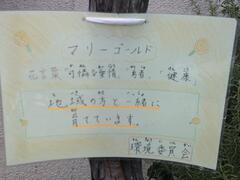 マリーゴールド
花言葉 可憐な愛情 勇者 健康
地域の方と一緒に
育てています。
環境委員会